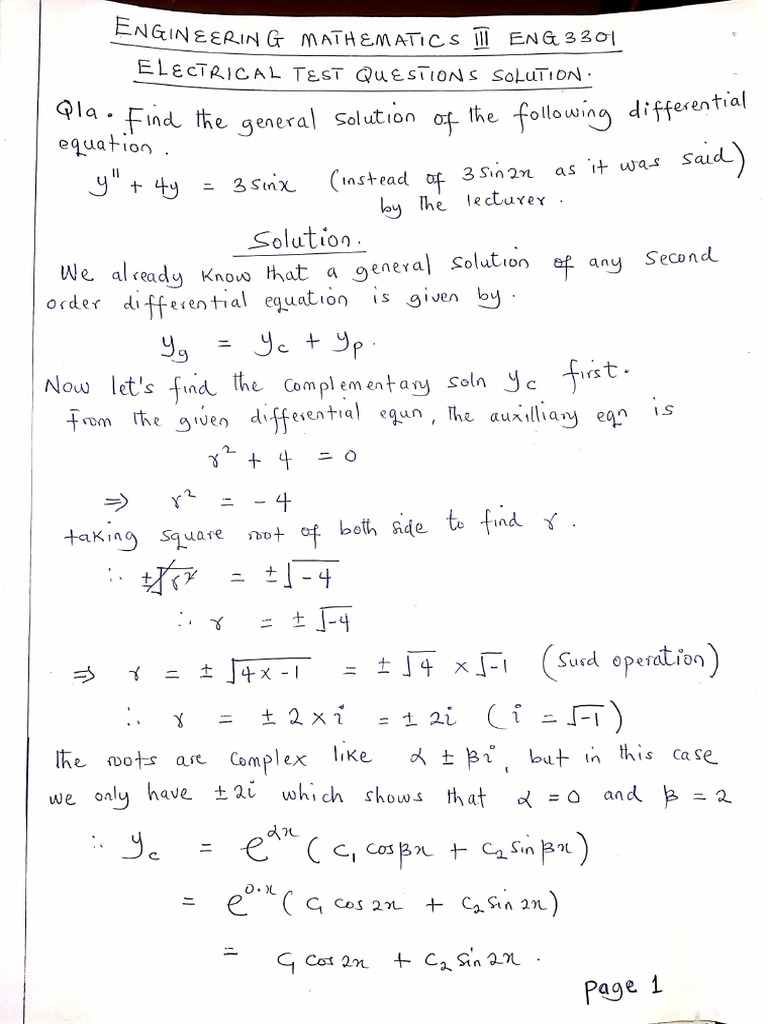 ENGINEERING MATHEMATICS III ENG3301
ELECTRICAL TEST QUESTIONS SOLUTION.
Q1a. Find the general solution of the following differential
equation.
y'' + 4y = 3 sinx (instead of 3 sin2x as it was said)
by the lecturer.
Solution.
We already know that a general solution of any second
order differential equation is given by.
y_g = y_c + y_p.
Now let's find the complementary soln y_c first.
From the given differential equn, the auxilliary eqn is
r² + 4 = 0
⇒ r² = -4
taking square root of both side to find r.
∴ ±√r² = ±√-4
∴ r = ±√-4
⇒ r = ±√4×-1 = ±√4 ×√-1 (Surd operation)
∴ r = ±2×i = ±2i (i = √-1)
The roots are complex like α ± βi, but in this case
we only have ±2i which shows that α = 0 and β = 2
∴ y_c = e^αx (C₁ cosβx + C₂ sinβx)
= e^0.x (C₁ cos 2x + C₂ sin 2x)
= C₁ cos 2x + C₂ sin 2x.
Page 1